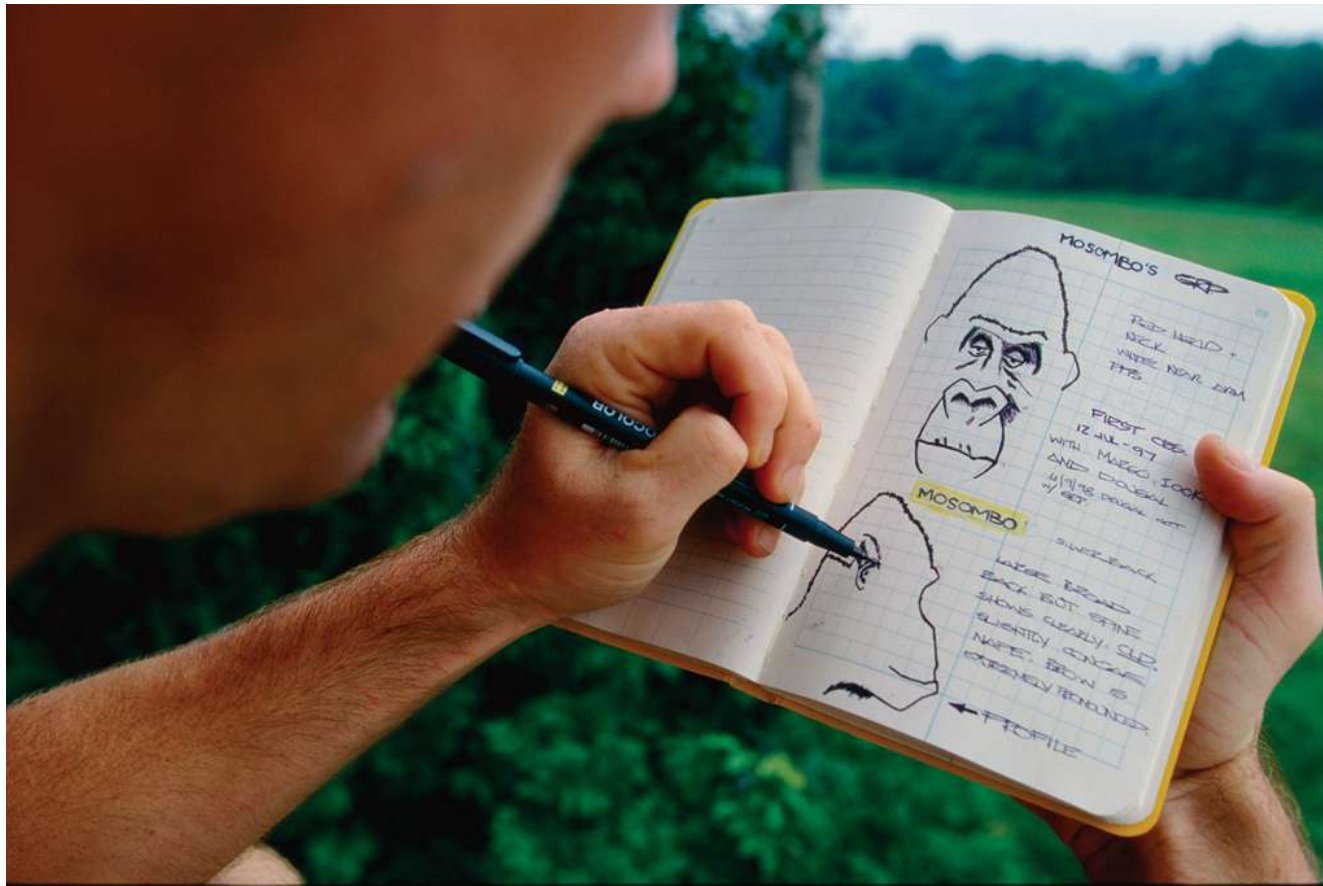 MOSOMBO'S GRP
RED HEAD +
NECK
WHITE NEAR
FIRST OBS.
12 JUL-97
WITH
AND DOUGAL
4/9/98 DOUGAL NOT
W/ GRP
MOSOMBO
SILVERBACK
LARGE BROAD
BACK BUT SPINE
SHOWS CLEARLY. OLD.
SLIGHTLY CONCAVE
NAPE. BROW IS
EXTREMELY PRONOUNCED.
← PROFILE
OCOLOR